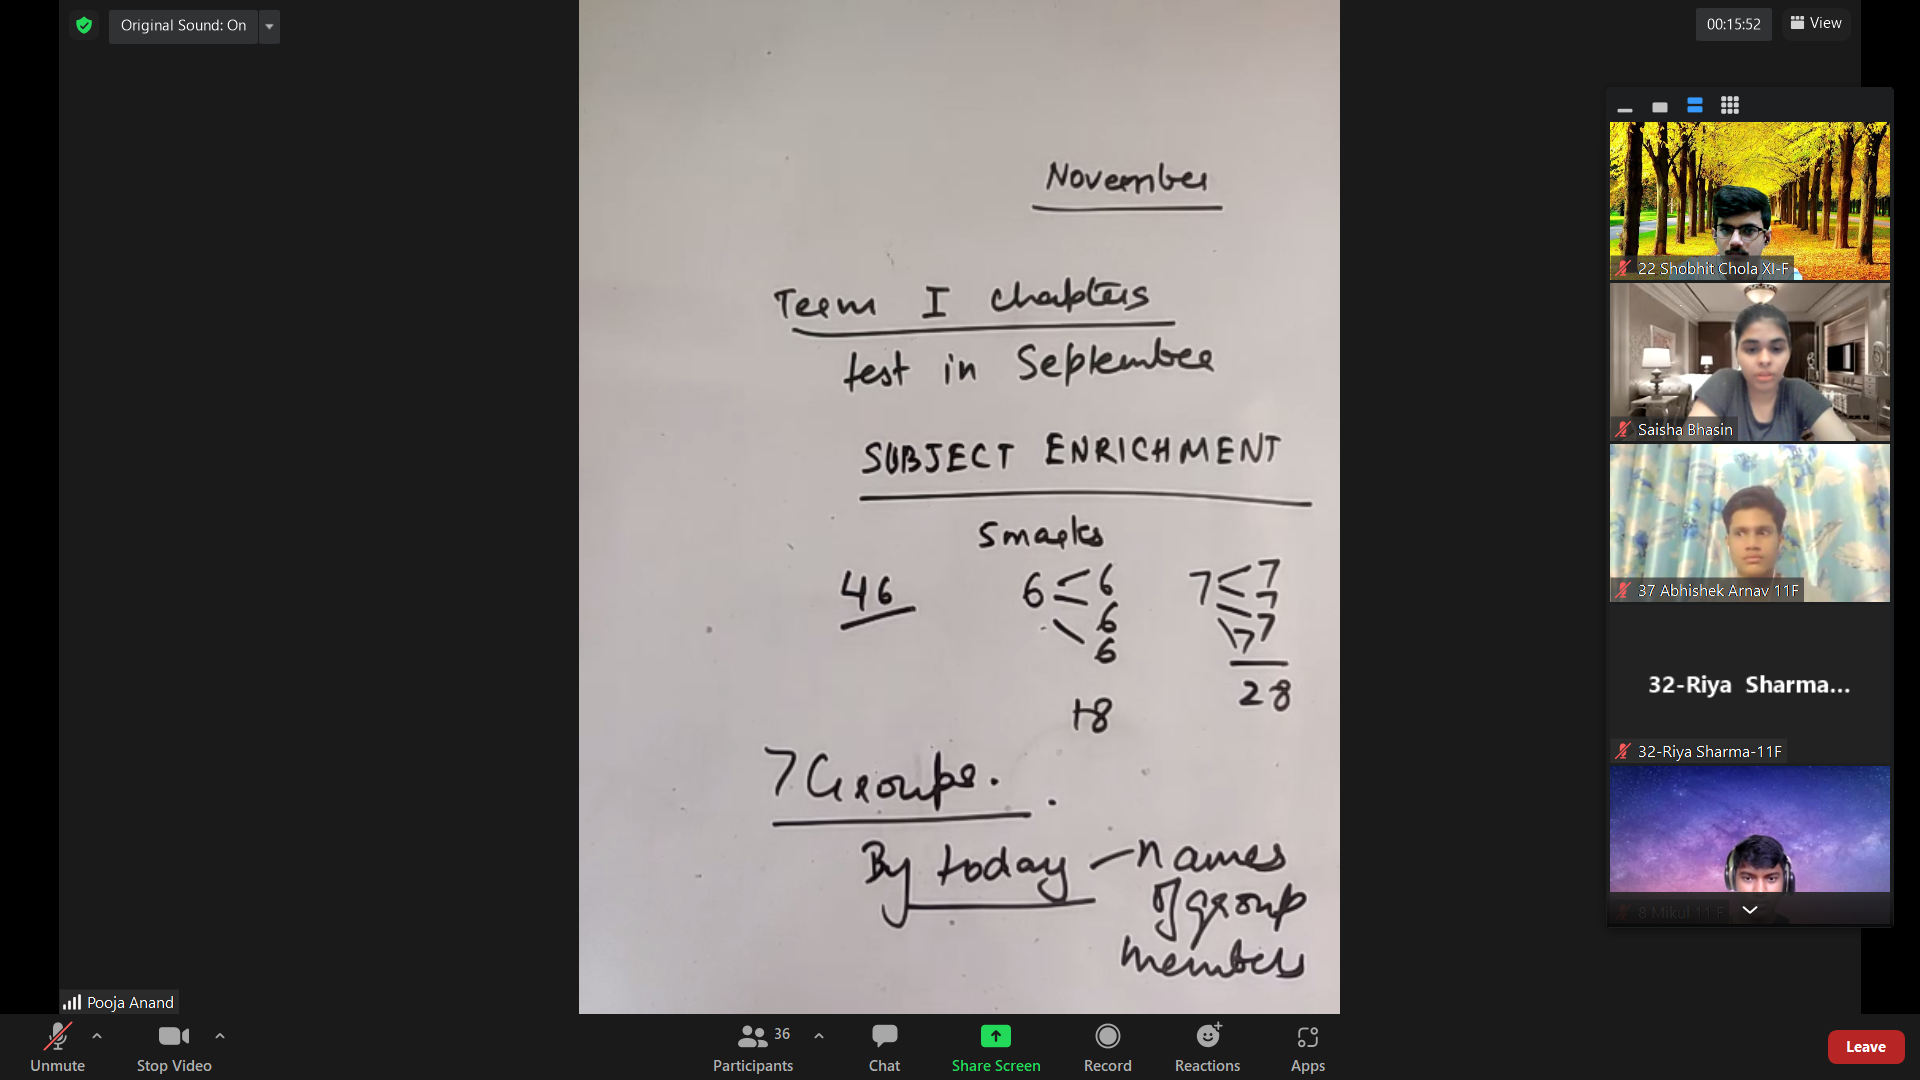 Original Sound: On
00:15:52
View
November
Term I chapters
test in September
SUBJECT ENRICHMENT
5 marks
46
6 6
6
6
7 7
7
7
7
28
18
7 Groups.
By today - names
of group
members
22 Shobhit Chola XI-F
Saisha Bhasin
37 Abhishek Arnav 11F
32-Riya Sharma...
32-Riya Sharma-11F
8 Mikul 11 F
Pooja Anand
Unmute
Stop Video
Participants
36
Chat
Share Screen
Record
Reactions
Apps
Leave